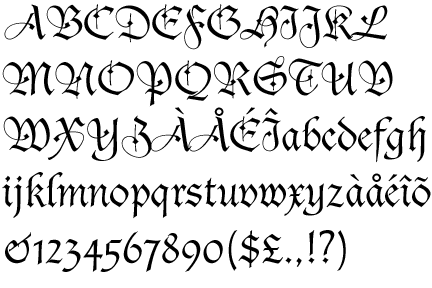 ABCDEFGHIJKL
MNOPQRSTUV
WXYZÀÅÉÎabcdefgh
ijklmnopqrstuvwxyzàåéîõ
&1234567890($£.,!?)